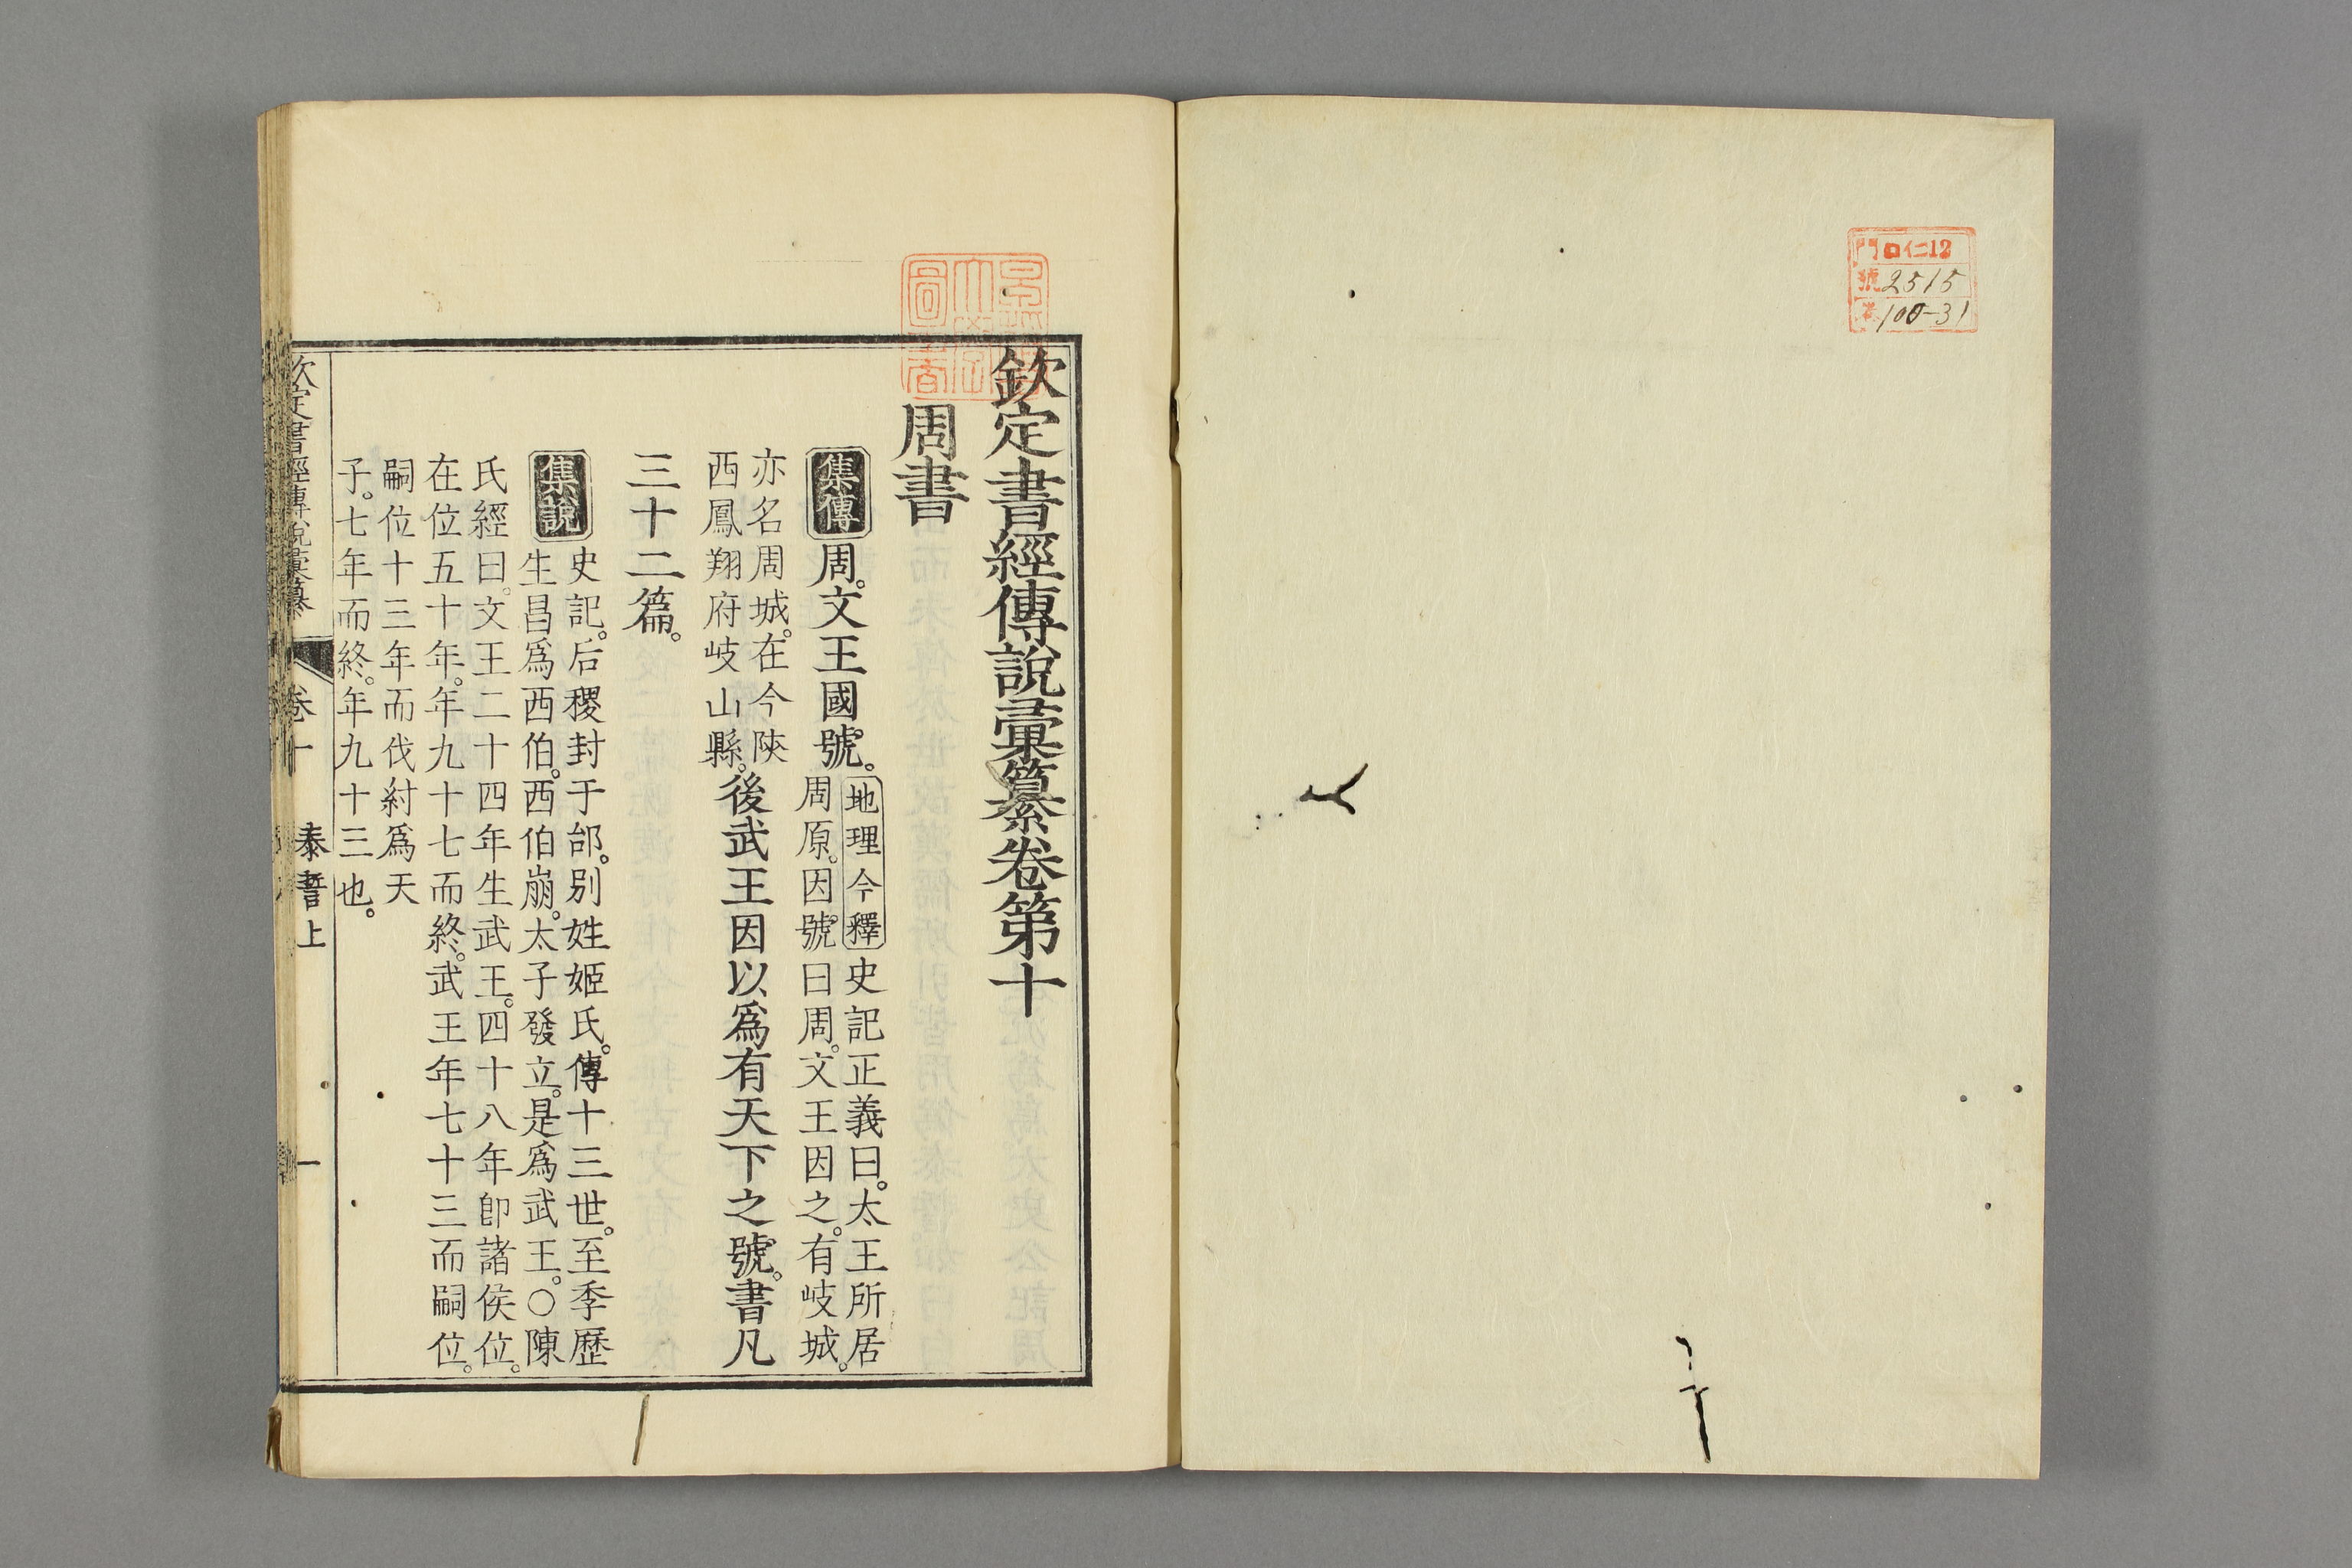 門口仁12
號2515
卷100-31
欽定書經傳說彙纂卷第十
周書
集傳
周。文王國號。
地理今釋
史記正義曰。太王所居
周原。因號曰周。文王因之。有岐城。
亦名周城。在今陝
西鳳翔府岐山縣。
後武王因以爲有天下之號。書凡
三十二篇。
集說
史記。后稷封于邰。別姓姬氏。傳十三世。至季歷
生昌爲西伯。西伯崩。太子發立。是爲武王。○陳
氏經曰。文王二十四年生武王。四十八年卽諸侯位。
在位五十年。年九十七而終。武王年七十三而嗣位。
嗣位十三年而伐紂爲天
子。七年而終。年九十三也。
欽定書經傳說彙纂
卷十
泰誓上
一